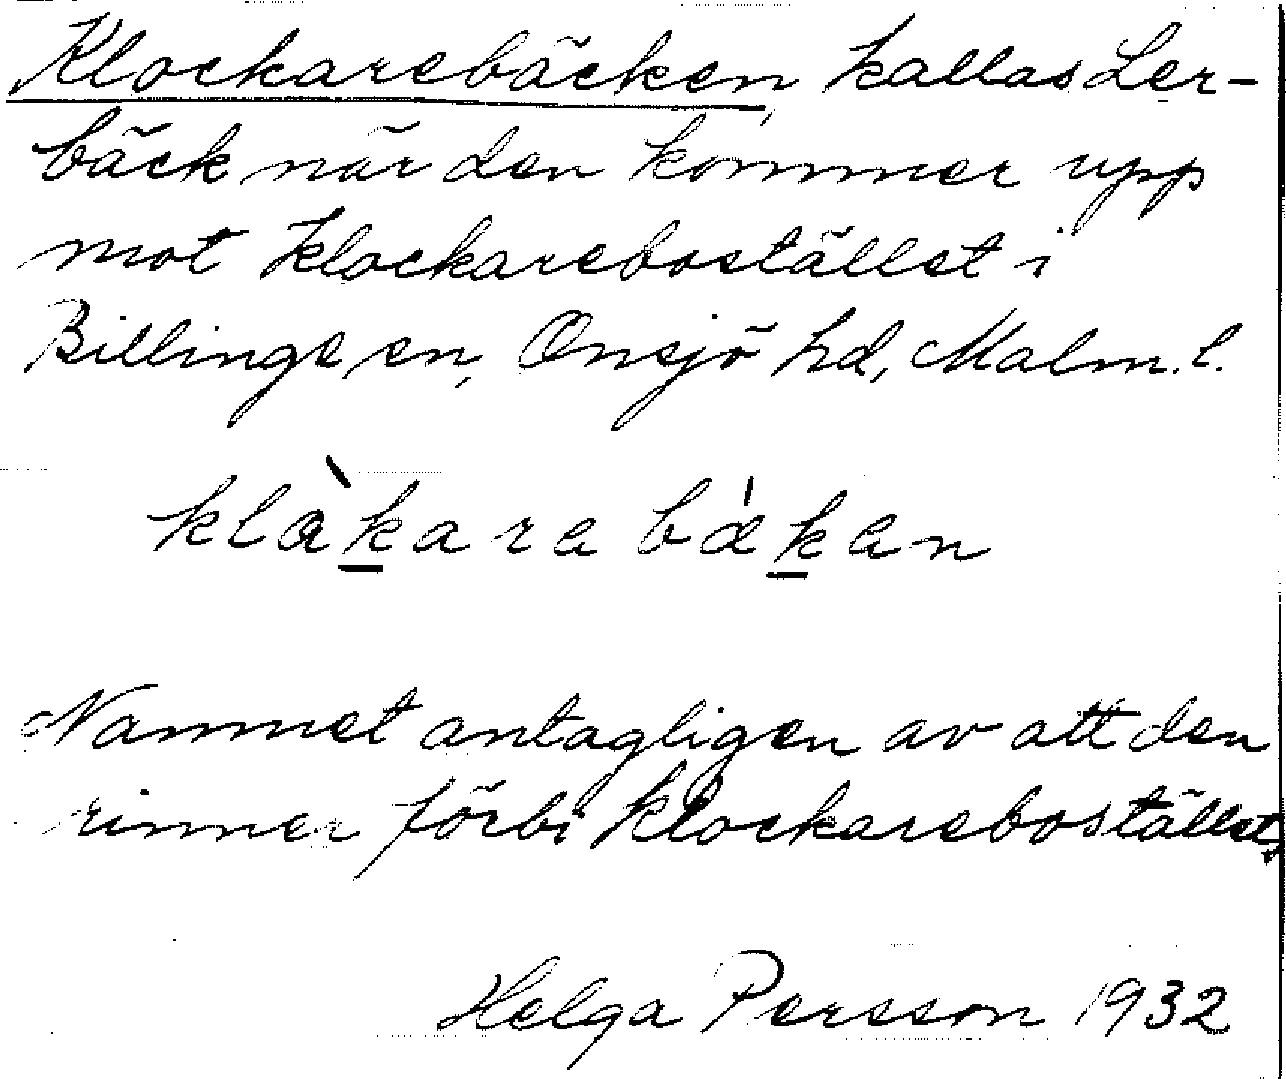 Klockarebäcken kallas Ler-
bäck när den kommer upp
mot klockarebostället i
Billinge sn, Onsjö hd, Malm. l.
klàkara bǽkan
Namnet antagligen av att den
rinner förbi klockarebostället.
Helga Persson 1932